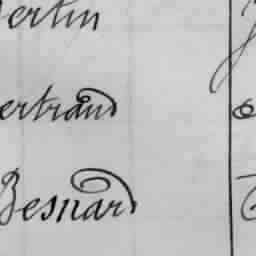 Bertin
Bertrand
Besnard